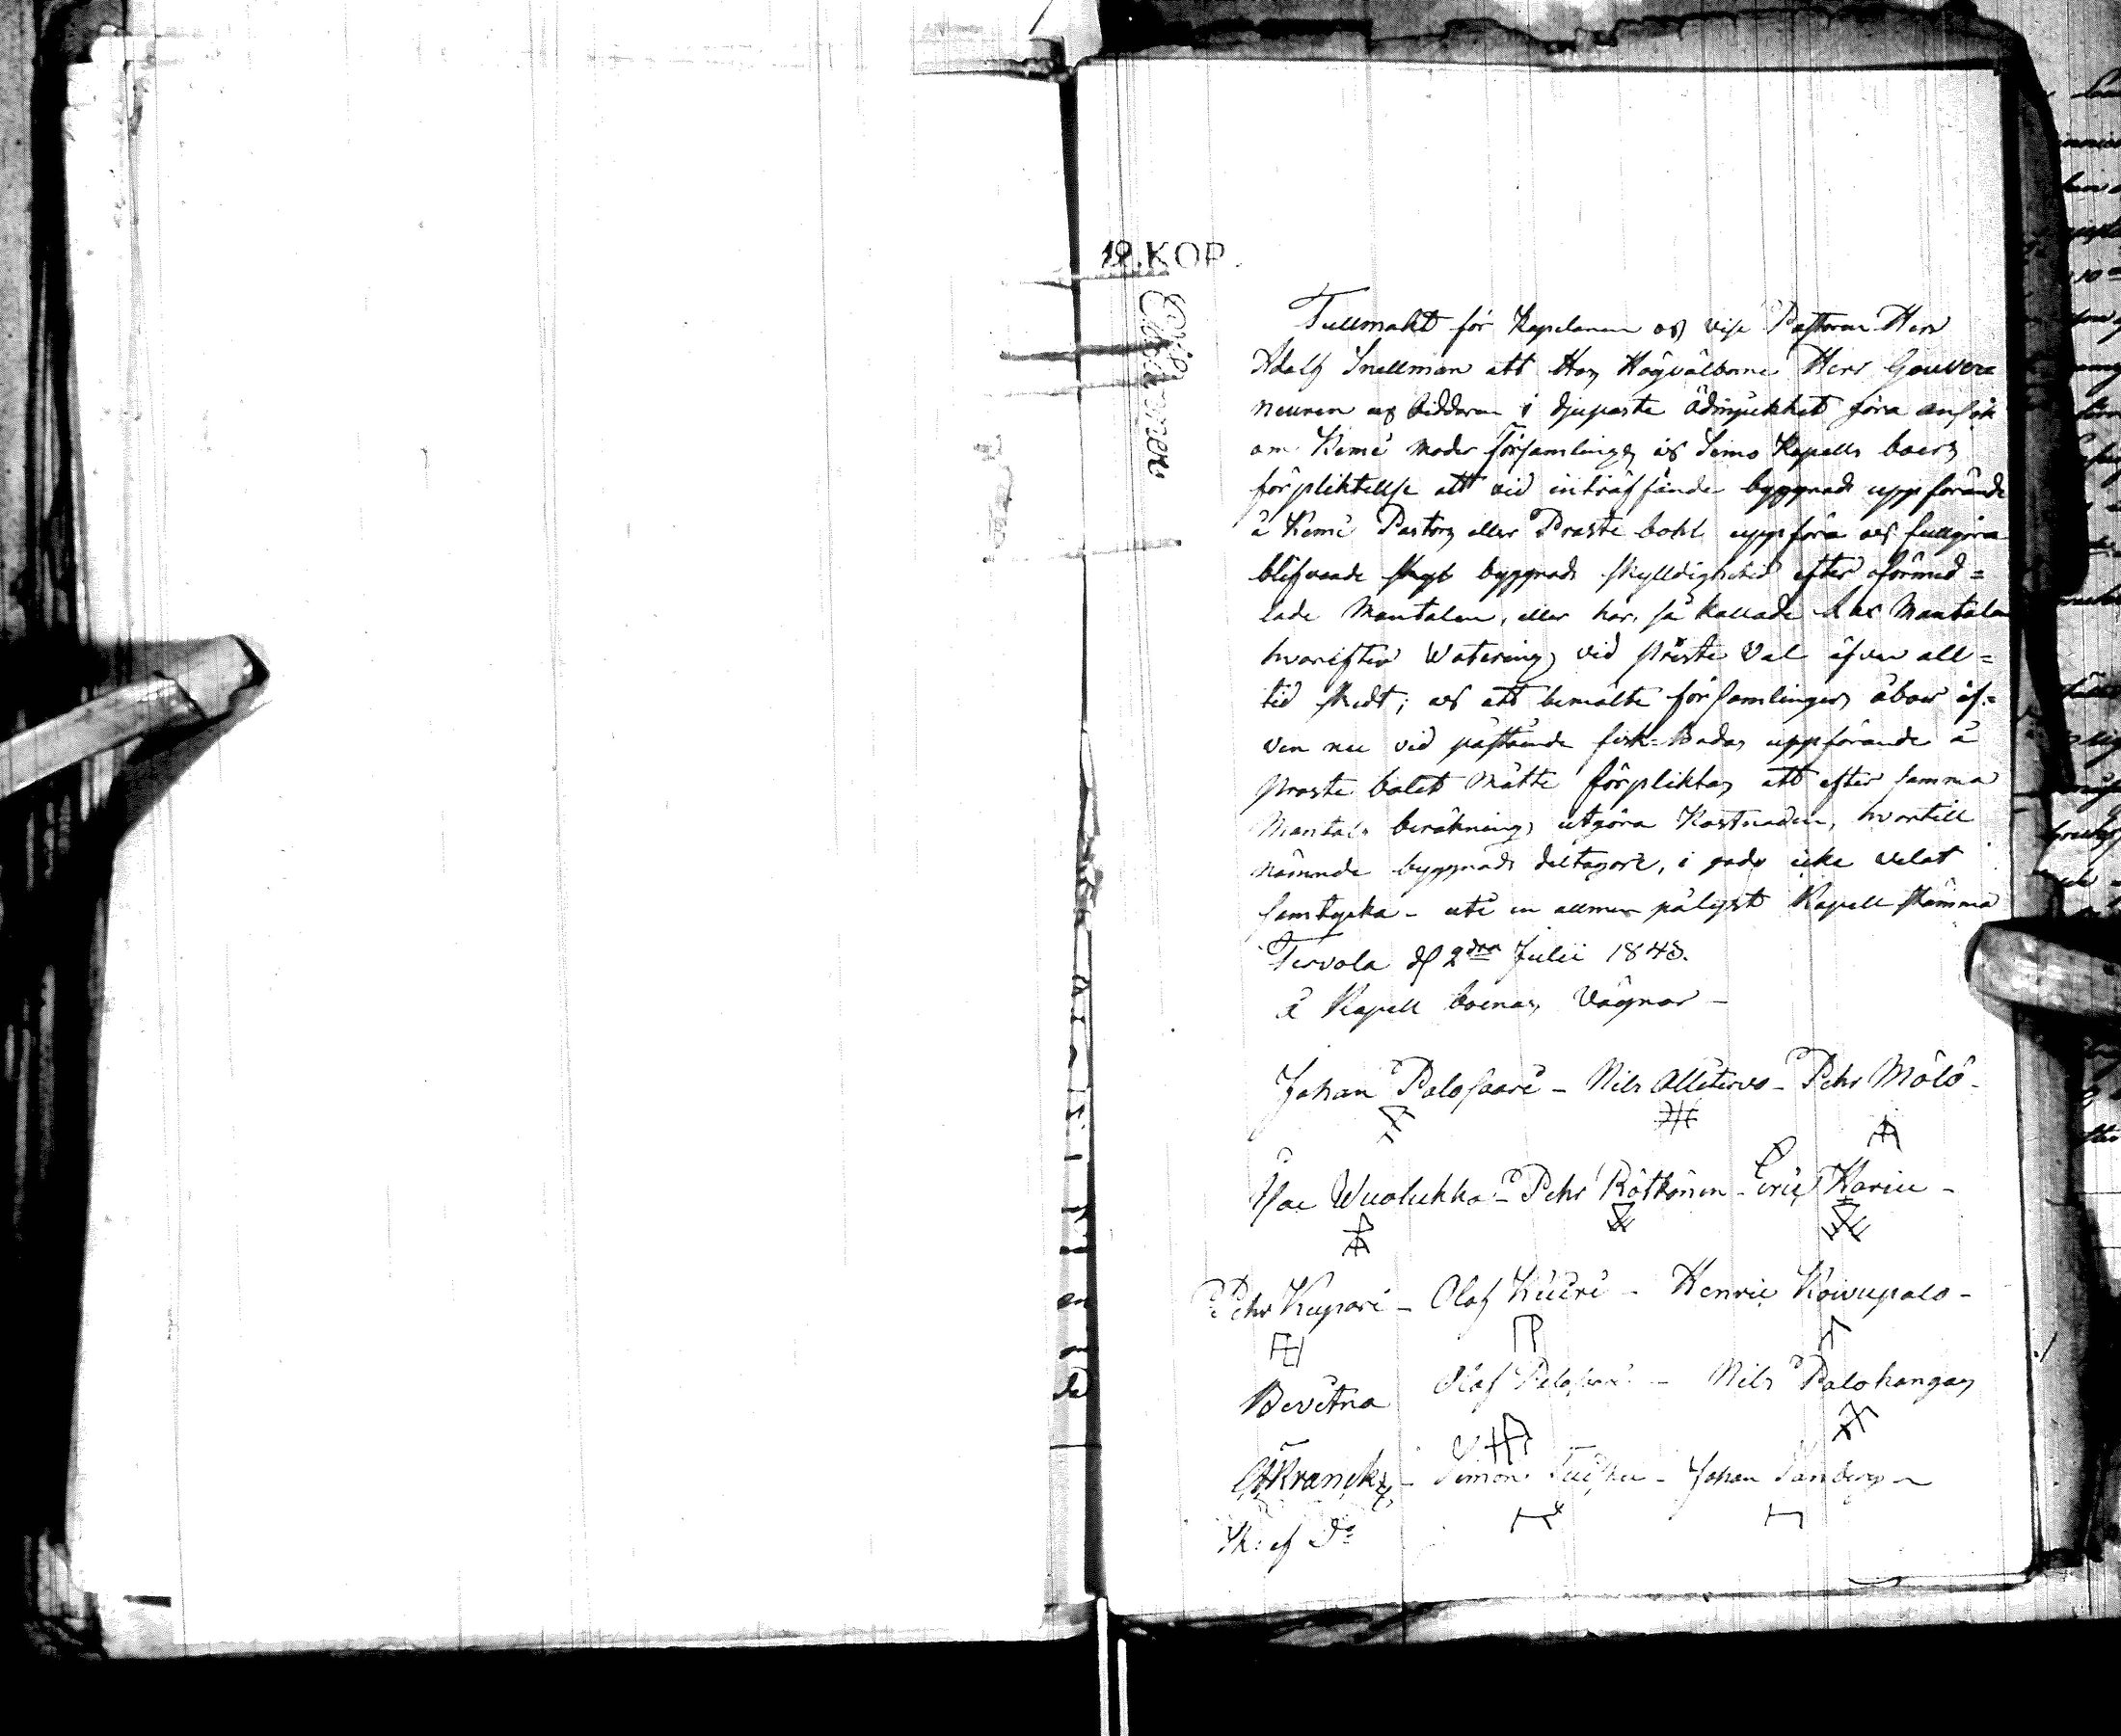 12.KOP.
Fullmakt för Kapelanen och vise Pastoren Herr
Adolf Snellman att Hos Högvälborne Herr Gouver=
neuren och Riddaren i djupaste ödmjukhet föra ansök
om Kemi moder församlings och Simo Kapells boers
förpliktellse att vid inträffande byggnads uppförande
å Kemi Pastors eller Präste bohl uppföra och fullgöra
blifvande byggnads skylldighetid efter oförmed=
lade Mantalen, eller här, så kallade Mantalen
hvarefter Wotering vid Präste Val äfven all=
tid skedt; och att bemälte församlingers åboer äf=
ven nu vid påstående uppförande å
Präste bolet måtte förpliktas att efter samma
Mantals beräkning utgöra Kostnaden, hvartill
nämnde byggnads deltagare, i godo icke velat
samtycka - uti en allmen pålyst Kapell stämma
Tervola d 2dra Julii 1843.
å Kapell boernas Vägnar -
Johan Palosaari - Nils Alletervo - Pehr Mölö -
Isac Wuolukka - Pehr Rötkönen - Eric Karin -
Pehr Kupari - Olof Kuiri - Henric Koivupalo -
Bevitna Olof Palosaari - Nils Palokangas
A Franck - Simon - Johan Sandberg -